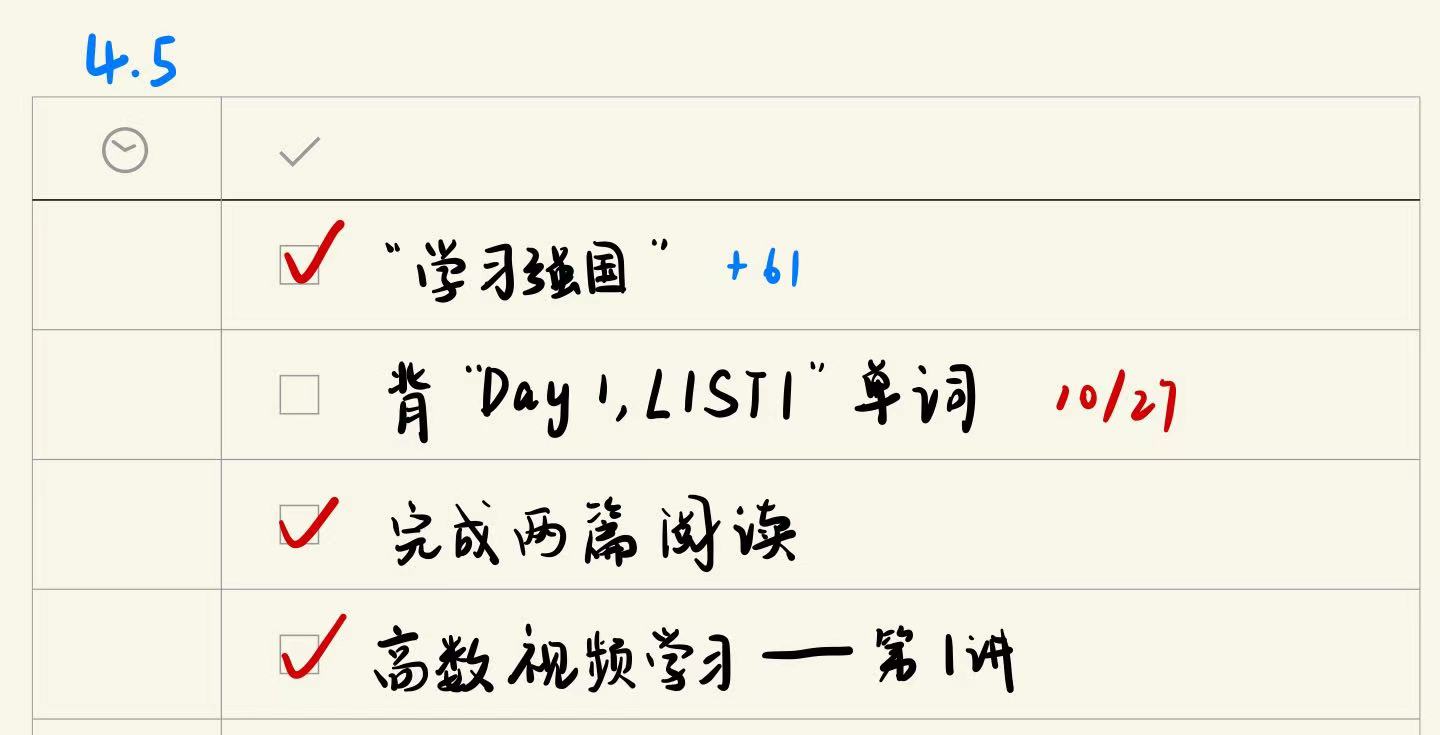 4.5
“学习强国” +61
背“Day 1, LIST1”单词 10/27
完成两篇阅读
高数视频学习——第1讲